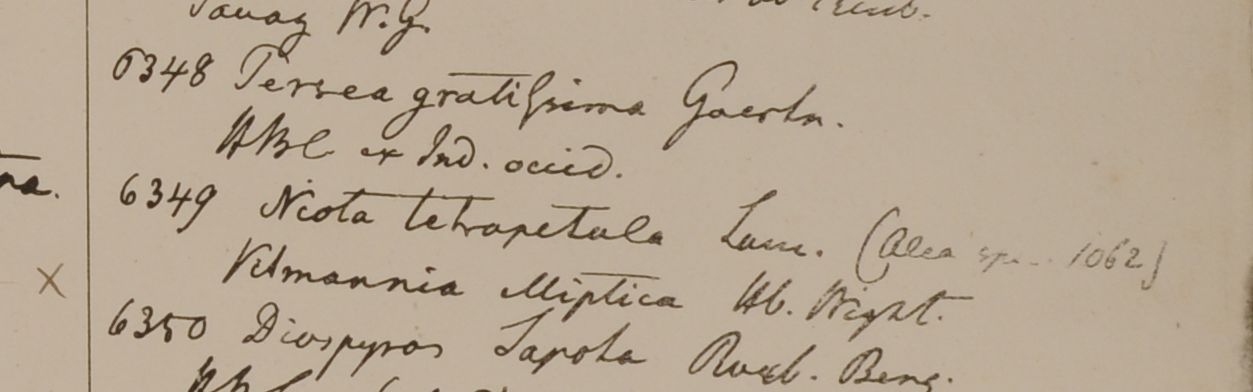 Tavay W.G.
6348 Persea gratissima Gaertn.
HBC ex Ind. occid.
tra.
6349 Niota tetrapetala Lam. (Alea sp. 1062)
Vitmannia elliptica Hb. Wight.
X
6350 Diospyros Sapota Roxb. Beng.
HBC